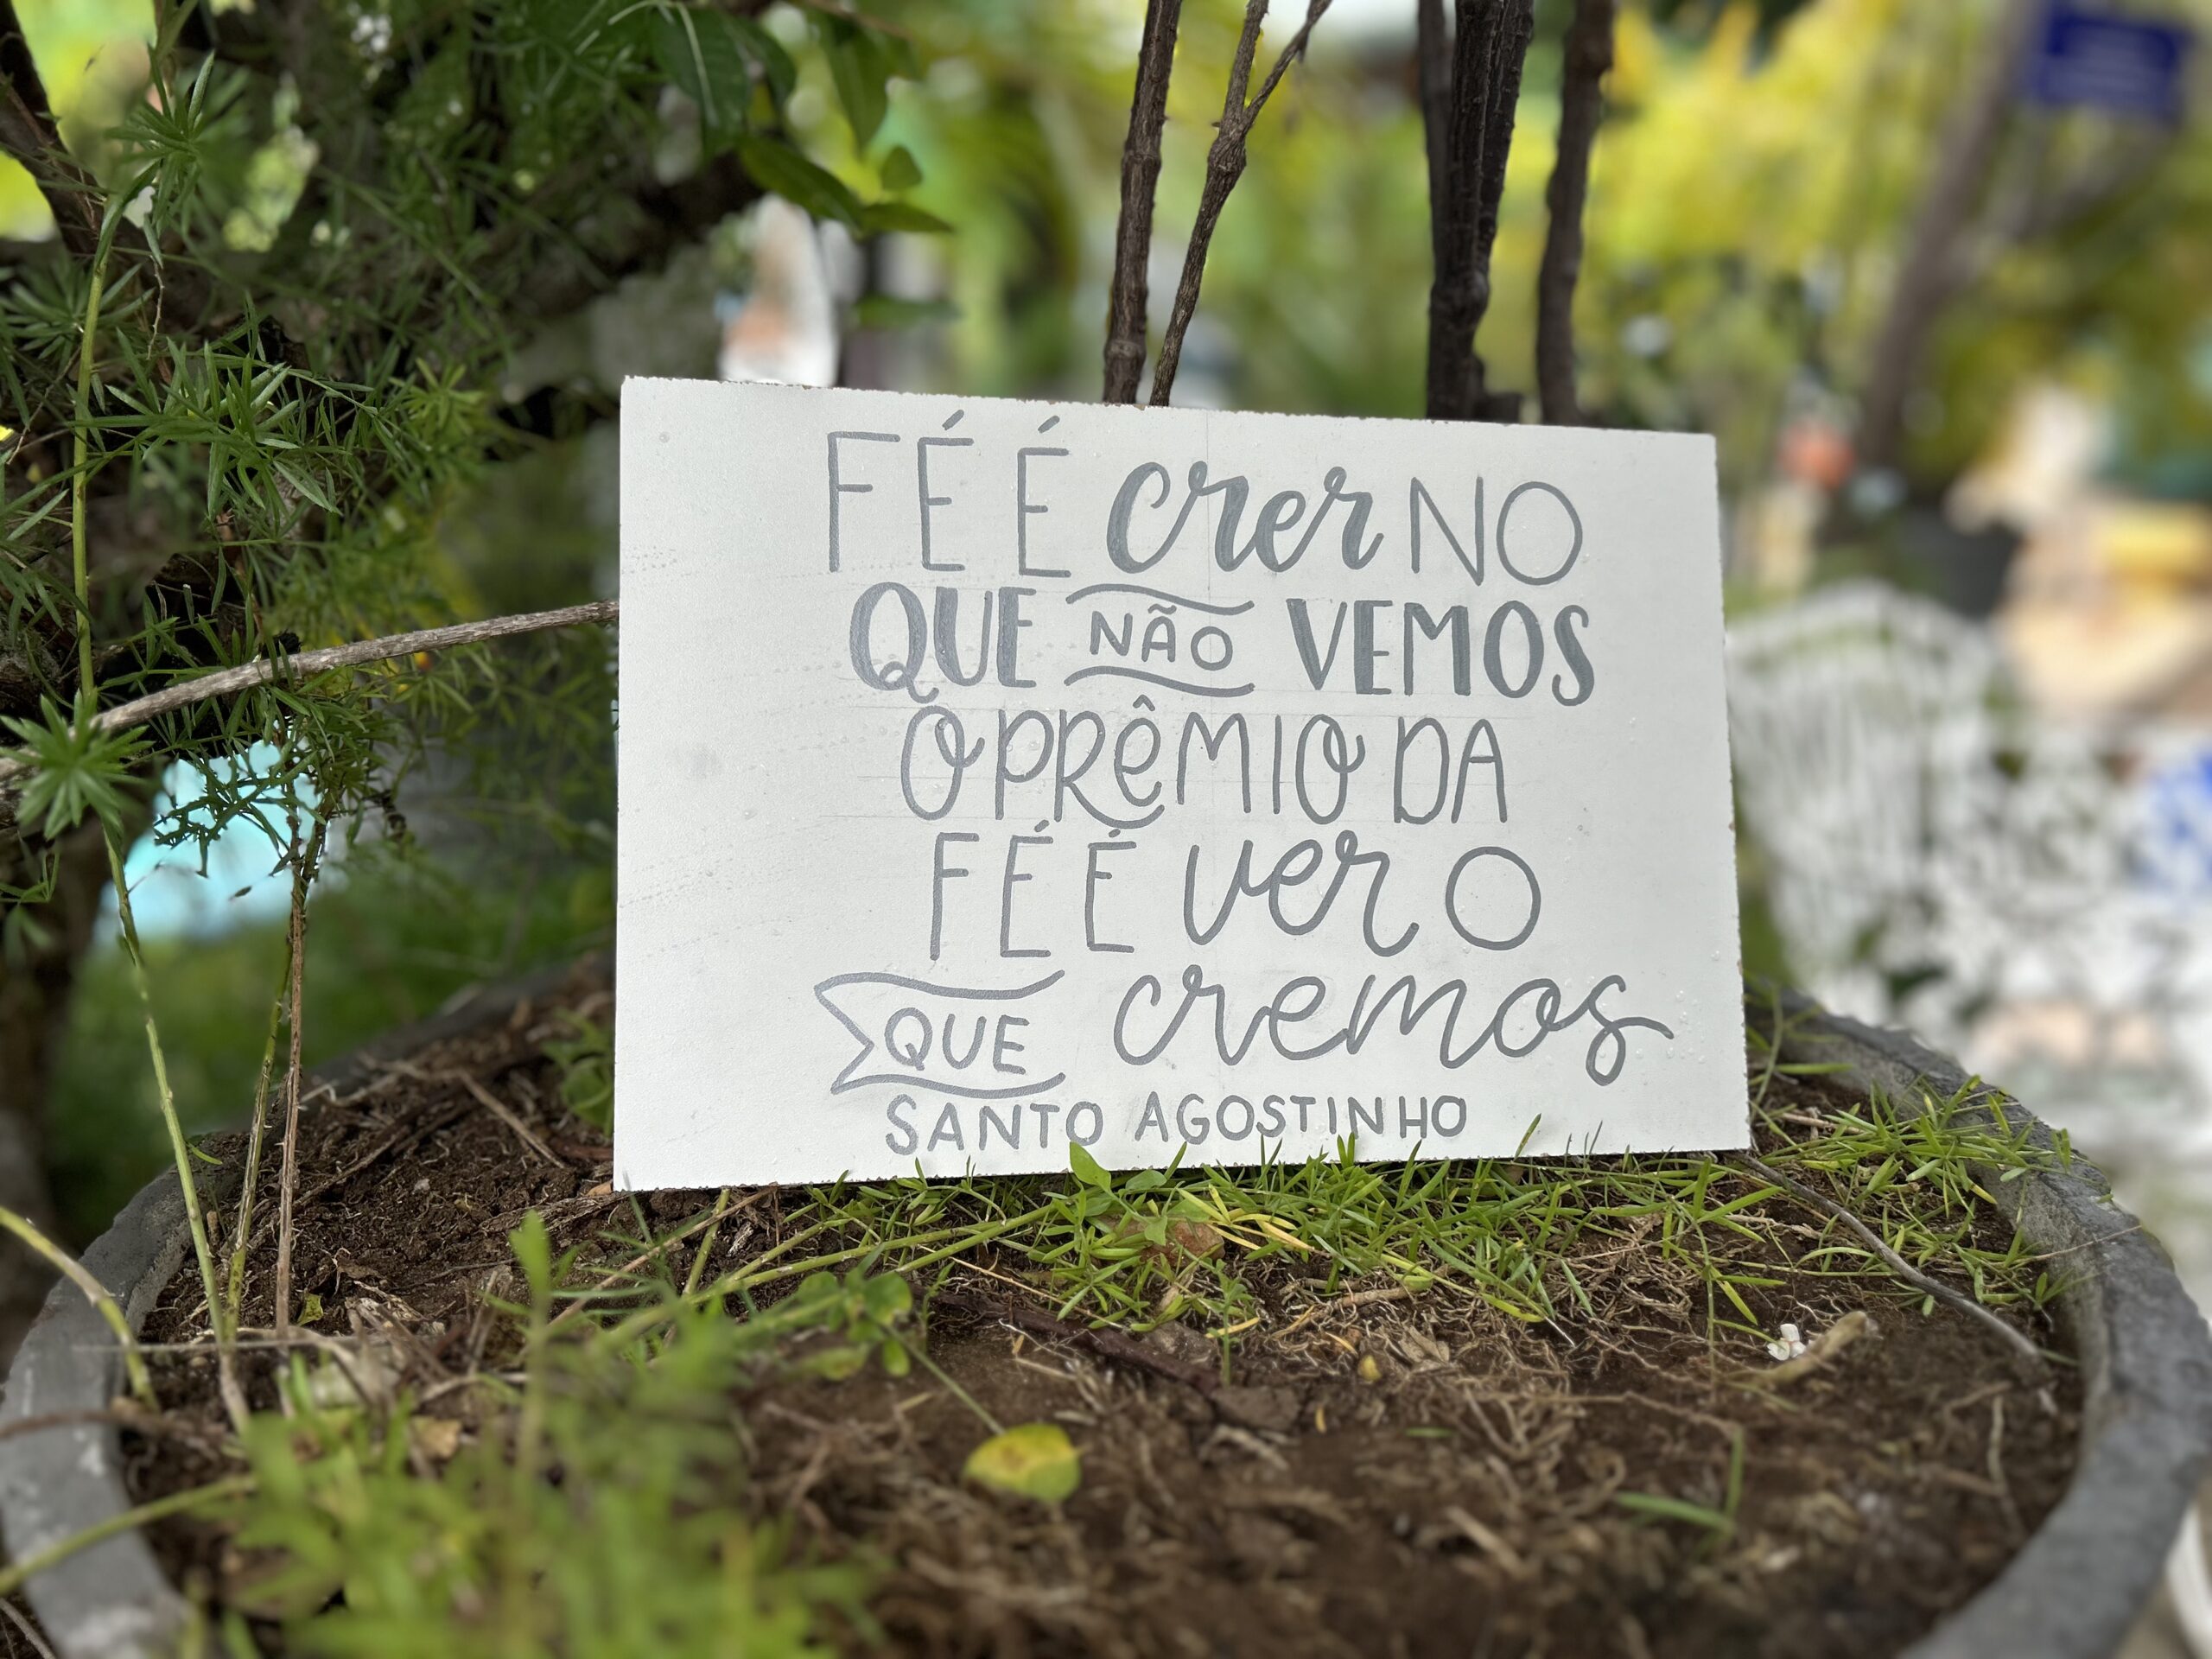 FÉ É crer NO
QUE NÃO VEMOS
O PRÊMIO DA
FÉ É ver O
QUE cremos
SANTO AGOSTINHO